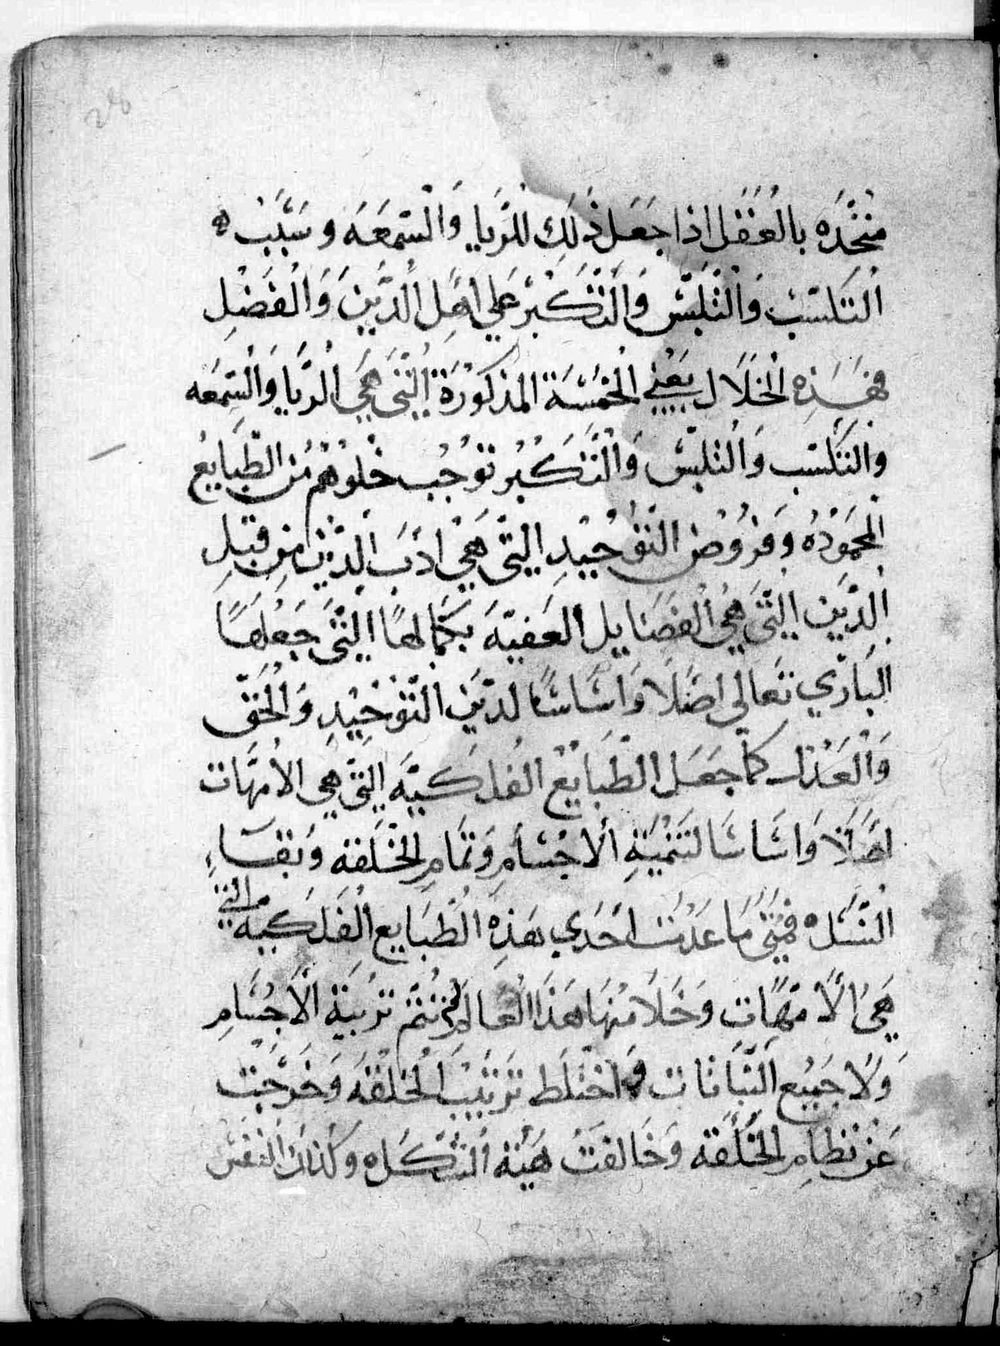 متحده بالعقل اذا جعل ذلك للريا والسمعه وسبب
التكسب والتلبس والتكبر على اهل الدين والفضل
فهذه الخلال يعني الخمسة المذكورة التي هي الريا والسمعه
والتكسب والتلبس والتكبر توجب خلوهم من الطبايع
المحموده وفروض التوحيد التي هي ادب الدين من قبل
الدين التي هي الفضايل العفيه بكمالها التي جعلها
الباري تعالى اصلا واساسا لدين التوحيد والحق
والعدل كما جعل الطبايع الفلكية التي هي الامهات
اصلا واساسا لتنمية الاجسام وتمام الخلقه وبقاء
النسل فمتى ما عدت احدى هذه الطبايع الفلكية التي
هي الامهات وخلا منها هذا العالم لم تتم تربية الاجسام
ولا جميع النباتات واختلط ترتيب الخلقه وخرجت
عن نظام الخلقه وخالفت هية الشكل وكذلك النفس
28